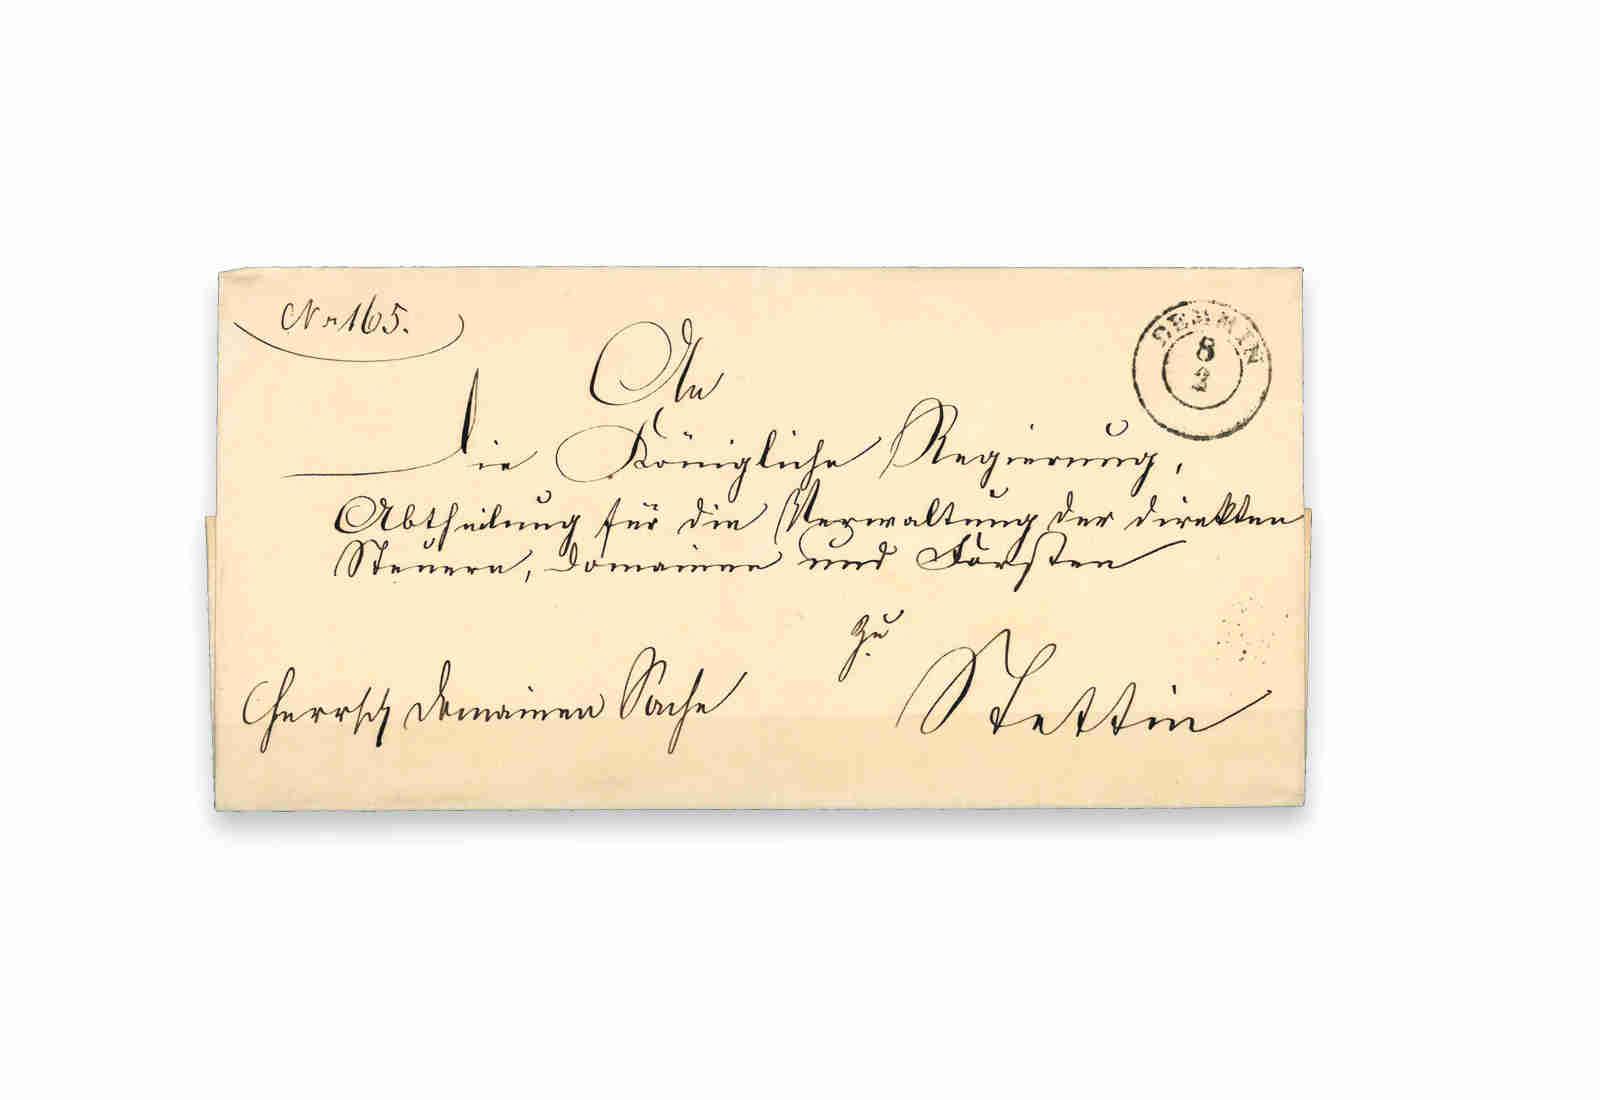 Nr 165.
DEMMIN
8
2
An
die Königliche Regierung,
Abtheilung für die Verwaltung der direkten
Steuern, Domainen und Forsten
zu
Stettin
Herrsch Domainen Sache